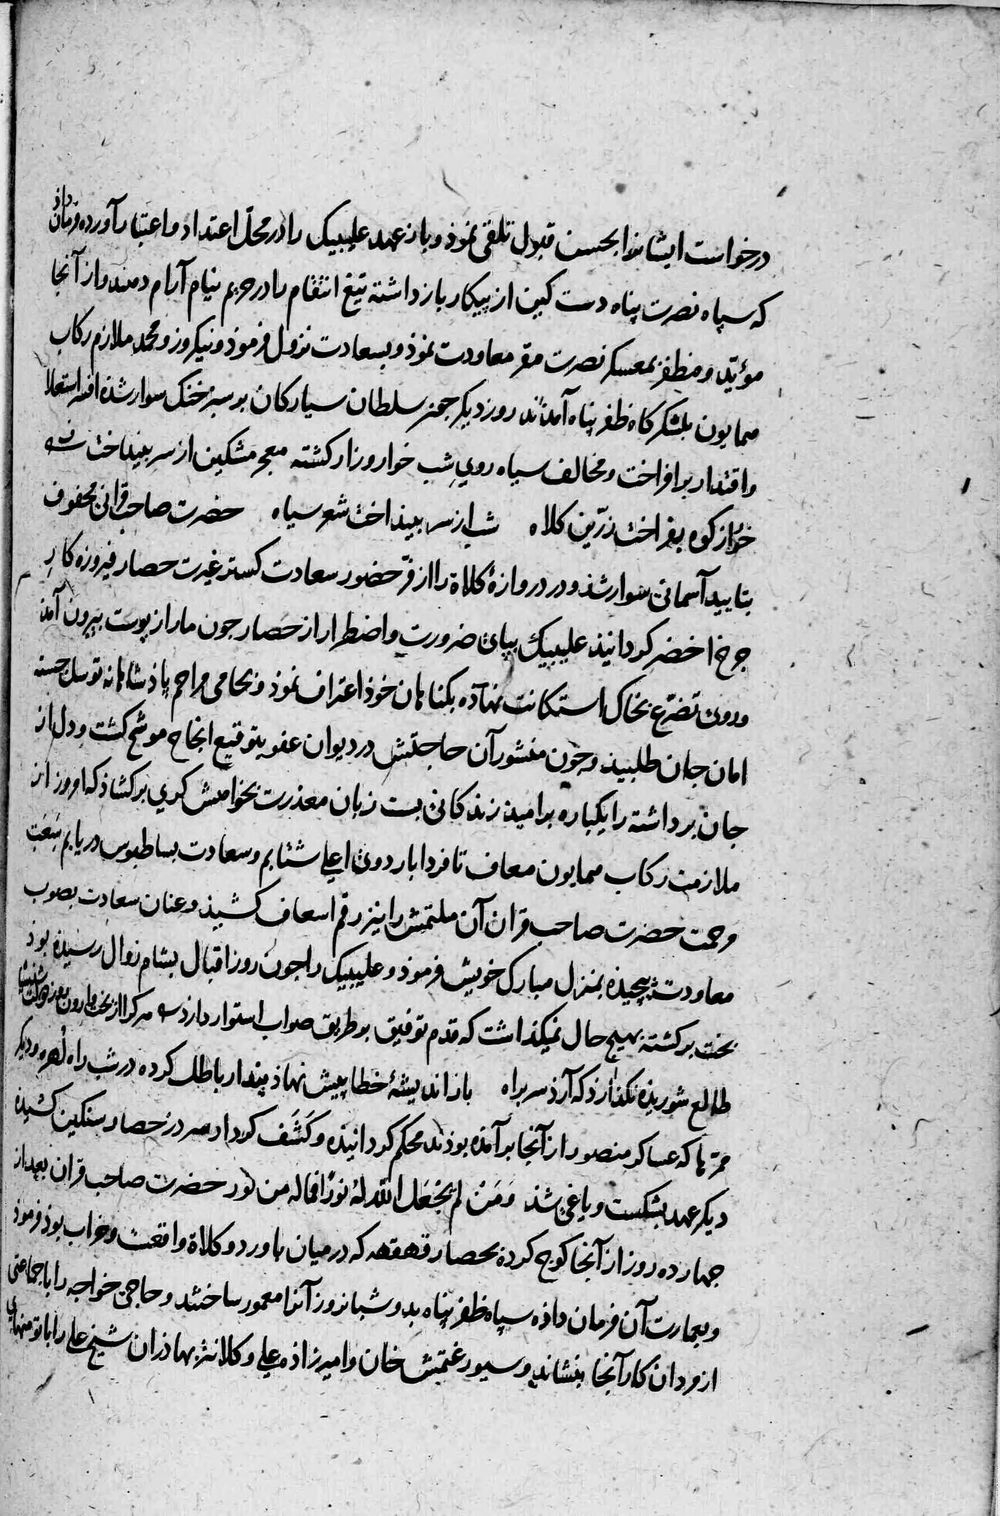 درخواست ایشانرا بحسن قبول تلقی نموذ و بار عهد علیبیک را در محلّ اعتداد و اعتبار آورده فرمان داذ
که سپاه نصرت پناه دست کین از پیکار بازداشته تیغ انتقام را در حریم نیام آرام دهند و از آنجا
مؤیّد و مظفر بمعسکر نصرت مقر معاودت نموذ و بسعادت نزول فرموذ و نیکروز و محمد ملازم رکاب
همایون بلشکرکاه ظفر پناه آمذند روز دیکر جمن سلطان سیارکان بر سبز خنک سوار شذه افسر استعلا
و اقتدار برافراخت و مخالف سیاه روی شب خوار و زار کشته معجر مشکین از سر بینداخت
خور از کوه بفراخت زرّین کلاه شب از سر بینداخت شعر سیاه حضرت صاحب قرانی محفوف
بتایید آسمانی سوار شذ و در دروازهٔ کلاة را از فرّ حضور سعادت کستر غیرت حصار فیروزه کار
جرخ اخضر کردانیذ علیبیک بپای ضرورت و اضطرار از حصار جون مار از پوست بیرون آمذ
و روی تضرّع بخاک استکانت نهاده بکناهان خوذ اعتراف نموذ و بحامی مراحم پاذشاهانه توسل جسته
امان جان طلبیذ و چون منشور آن حاجتش در دیوان عفو بتوقیع انجاح موشح کشت و دل از
جان برداشته را یکباره بر امید زندکانی بست زبان معذرت بخواهش کری برکشاذ که امروز از
ملازمت رکاب همایون معاف تا فردا باردوی اعلی شتابم و سعادت بساط بوس دریابم سعت
رحمت حضرت صاحب قران آن ملتمس را نیز رقم اسعاف کشیذ و عنان سعادت بصوب
معاودت پیجیذه بمنزل مبارک خویش فرموذ و علیبیک را جون روز اقبال بشام زوال رسیذه بوذ
بخت برکشته بهیچ حال نمیکذاشت که قدم توفیق بر طریق صواب استوار دارذ هر کرا از بخت وارون روز دولت شذ تباه
طالع شوریذه نکذارذ که آرذ سر براه باز اندیشهٔ خطا پیش نهاذ پندار باطل کرده در شب راه لهره و دیکر
ممرّها که عساکر منصور از آنجا برآمذه بوذند محکم کردانیذه و کشف کردار سر در حصار سنکین کشیذه
دیکر عهد بشکست و یاغی شذ وَمَنْ لَمْ یَجْعَلِ اللّهُ لَهُ نُورًا فَمَا لَهُ مِن نُور حضرت صاحب قران بعد از
جهارده روز از آنجا کوج کرده بحصار قهقهه که در میان باورد و کلاة واقعست و خراب بوذ فرموذ
و بعمارت آن فرمان داذه سپاه ظفر پناه بدو شبانروز آنرا معمور ساختند و حاجی خواجه را با جماعتی
از مردان کار آنجا بنشاند و سیورغتمش خان و امیرزاده علی و کلانتر بهاذران شیخ علی را با تومنهای